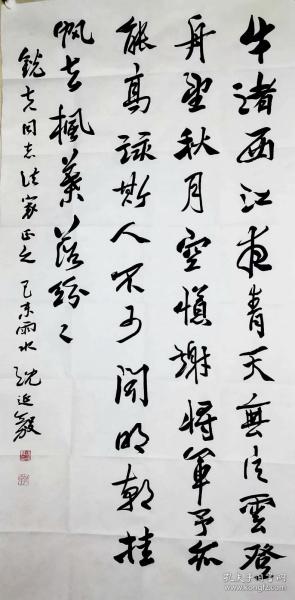 牛渚西江夜青天無片雲登
舟望秋月空憶謝將軍予亦
能高詠斯人不可聞明朝挂
帆去楓葉落紛〻
銳克同志法家正之 己未雨水 沈延毅
孔夫子旧书网